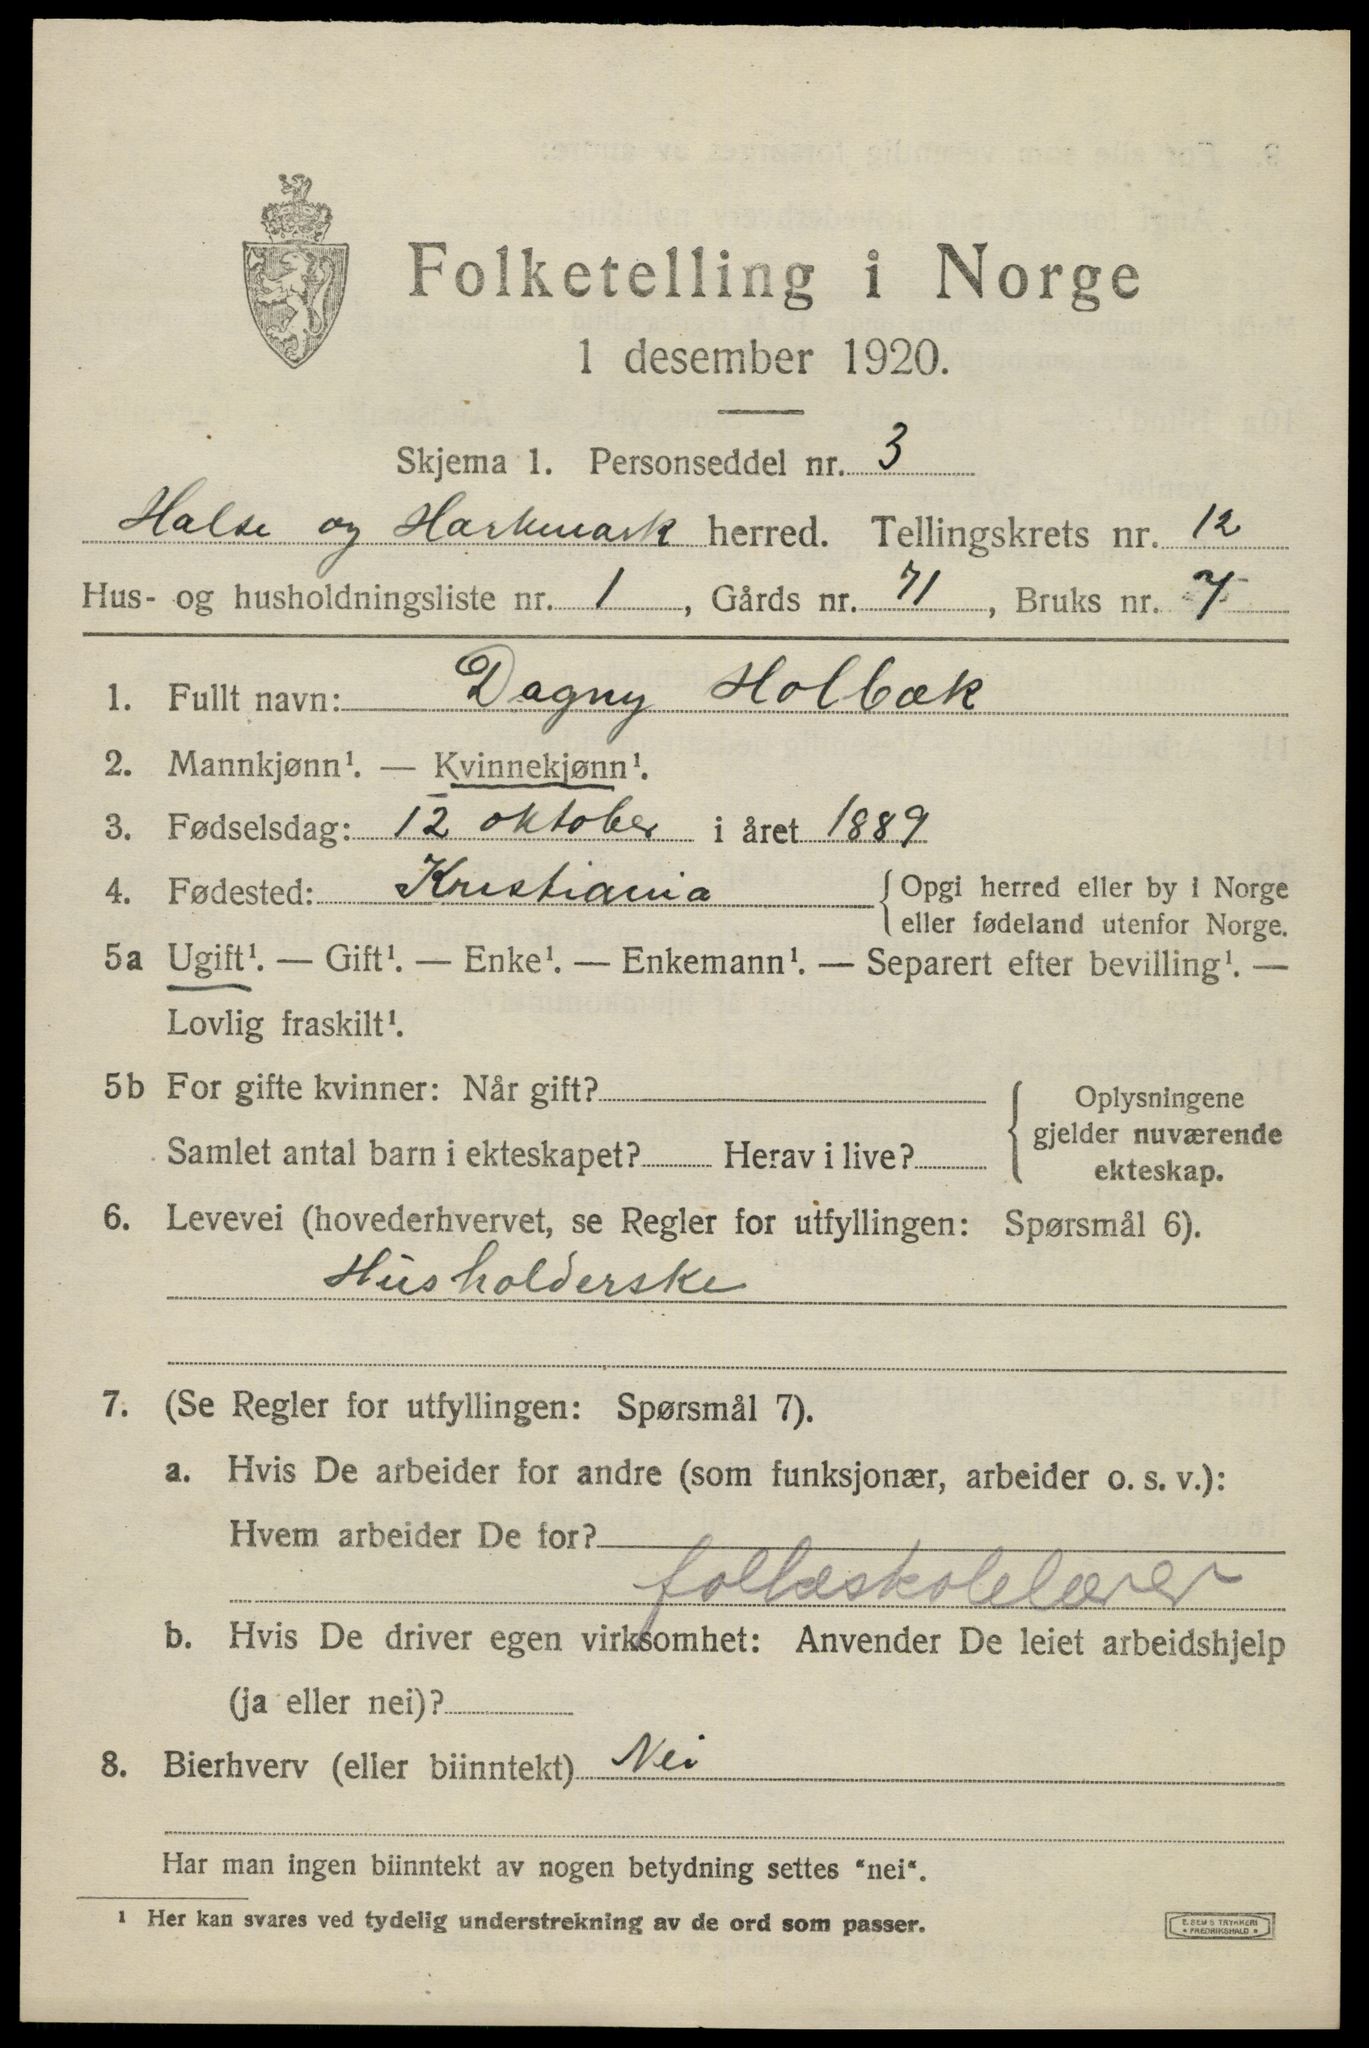 Folketelling i Norge
1 desember 1920.
Skjema 1. Personseddel nr. 3
Halse og Harkmark herred. Tellingskrets nr. 12
Hus- og husholdningsliste nr. 1, Gårds nr. 71, Bruks nr. 7
1. Fullt navn: Dagny Holbæk
2. Mannkjønn¹. — Kvinnekjønn¹.
3. Fødselsdag: 12 oktober i året 1889
4. Fødested: Kristiania { Opgi herred eller by i Norge
eller fødeland utenfor Norge.
5a Ugift¹. — Gift¹. — Enke¹. — Enkemann¹. — Separert efter bevilling¹. —
Lovlig fraskilt¹.
5b For gifte kvinner: Når gift? Oplysningene
gjelder nuværende
Samlet antal barn i ekteskapet? Herav i live? ekteskap.
6. Levevei (hovederhvervet, se Regler for utfyllingen: Spørsmål 6).
Husholderske
7. (Se Regler for utfyllingen: Spørsmål 7).
a. Hvis De arbeider for andre (som funksjonær, arbeider o. s. v.):
Hvem arbeider De for?
folkeskolelærer
b. Hvis De driver egen virksomhet: Anvender De leiet arbeidshjelp
(ja eller nei)?
8. Bierhverv (eller biinntekt) Nei
Har man ingen biinntekt av nogen betydning settes "nei".
¹ Her kan svares ved tydelig understrekning av de ord som passer.
E. SEM'S TRYKKERI
• FREDRIKSHALD •